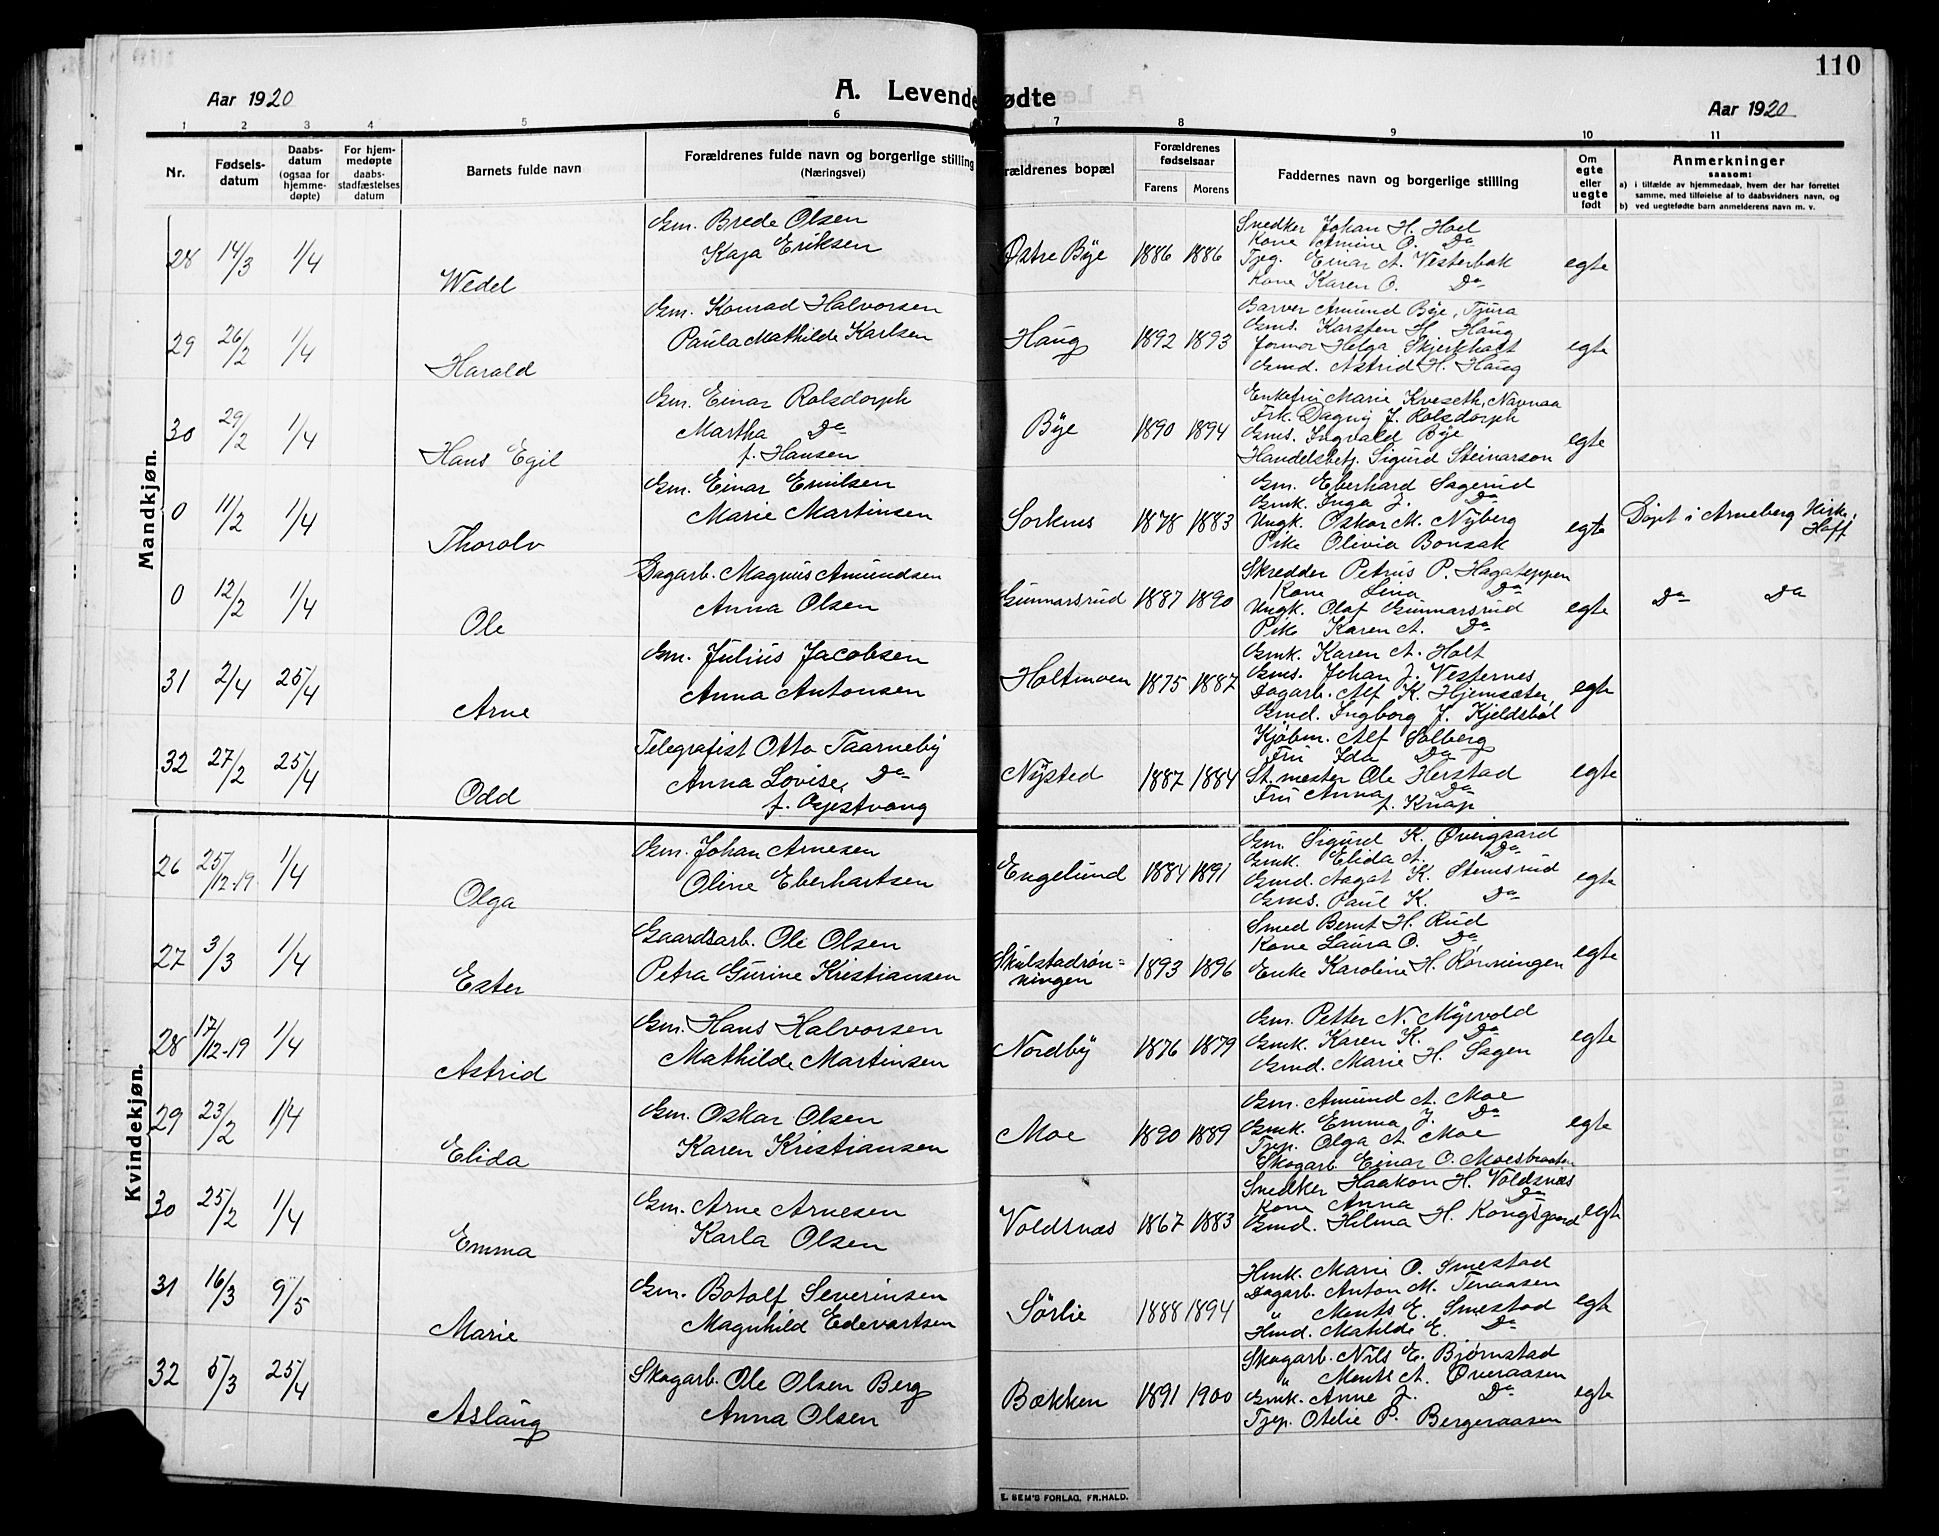 110
Aar 1920
A. Levendefødte
Aar 1920
1 2 3 4 5 6 7 8 9 10 11
Nr.
Fødsels-
datum
Daabs-
datum
(ogsaa for
hjemme-
døpte)
For hjem-
medøpte
daabs-
stadfæstelses
datum
Barnets fulde navn
Forældrenes fulde navn og borgerlige stilling
(Næringsvei)
rældrenes bopæl
Forældrenes
fødselsaar
Farens Morens
Faddernes navn og borgerlige stilling
Om
egte
eller
uegte
født
Anmerkninger
saasom:
a) i tilfælde av hjemmedaab, hvem der har forrettet
samme, med tilføielse af to daabsvidners navn, og
b) ved uegtefødte barn anmelderens navn m. v.
Mandkjøn.
28 14/3 1/4 Wedel
Gm. Brede Olsen
Kaja Eriksen
Østre Bÿe 1886 1886
Snedker Johan H. Hoel
Kone Amine O. Do
Tjeg. Einar A. Vesterbak
Kone Karen O. Do
egte
29 26/2 1/4 Harald
Gm. Konrad Halvorsen
Paula Mathilde Karlsen
Haug 1892 1893
Garver Amund Bÿe, Tjura
Gms. Karsten H. Haug
Jormor Helga Skjerkholt
Gmd. Astrid H. Haug
egte
30 29/2 1/4 Hans Egil
Gm. Einar Rolsdorph
Martha Do
f. Hansen
Bÿe 1890 1894
Enkefru Marie Kveseth, Navnaa
Frk. Dagny J. Rolsdorph
Gms. Ingvald Bÿe
Handelsbetj. Sigurd Steinarson
egte
0 11/2 1/4 Thoralv
Gm. Einar Emilsen
Marie Martinsen
Sorknes 1878 1883
Gm. Eberhard Sagerud
Gmk. Inga J. Do
Ungk. Oskar M. Nÿberg
Pike Olivia Bonsak
egte
Døpt i Arneberg Kirke.
Hoff
0 12/2 1/4 Ole
Dagarb. Magnus Amundsen
Anna Olsen
Gunnarsrud 1887 1890
Skredder Petrus P. Hagateppen
Kone Lina Do
Ungk. Olaf Gunnarsrud
Pike Karen A. Do
egte
Do Do
31 2/4 25/4 Arne
Gm. Julius Jacobsen
Anna Antonsen
Holtmoen 1875 1887
Gmk. Karen A. Holt
Gms. Johan J. Vesternes
Dagarb. Alf K. Hjemsæter
Gmd. Ingborg J. Kjeldsbøl
egte
32 27/2 25/4 Odd
Telegrafist Otto Taarneby
Anna Lovise, Do
f. Gjestvang
Nÿsted 1887 1884
Kjøbm. Alf Solberg
Fru Ida Do
St. mester Ole Herstad
Fru Anna Do
f. Knap
egte
Kvindekjøn.
26 25/12-19 1/4 Olga
Gm. Johan Arnesen
Oline Eberhartsen
Engelund 1884 1891
Gm. Sigurd K. Overgaard
Gmk. Elida A. Do
Gmd. Aagot K. Stemsrud
Gms. Paul K. Do
egte
27 3/3 1/4 Ester
Gaardsarb. Ole Olsen
Petra Gurine Kristiansen
Skulstadrøn-
ningen 1893 1896
Smed Bernt H. Rud
Kone Laura O. Do
Enke Karoline H. Rønningen
egte
28 17/12-19 1/4 Astrid
Gm. Hans Halvorsen
Mathilde Martinsen
Nordbÿ 1876 1879
Gm. Petter N. Mÿrvold
Gmk. Karen K. Do
Gmd. Marie H. Sagen
egte
29 23/2 1/4 Elida
Gm. Oskar Olsen
Karen Kristiansen
Moe 1890 1889
Gm. Amund A. Moe
Gmk. Emma J. Do
Tjep. Olga A. Moe
Skogarb. Einar O. Moesbraaten
egte
30 25/2 1/4 Emma
Gm. Arne Arnesen
Karla Olsen
Voldsnæs 1867 1883
Snedker Haakon H. Voldsnæs
Kone Anna Do
Gmd. Hilma H. Kongsgaard
egte
31 16/3 9/5 Marie
Gm. Botolf Severinsen
Magnhild Edevartsen
Sørlie 1888 1894
Hmk. Marie O. Smestad
Dagarb. Anton M. Tenaasen
" Ments E. Smestad
Hmd. Matilde E. Do
egte
32 5/3 25/4 Aslaug
Skogarb. Ole Olsen Berg
Anna Olsen
Bækken 1891 1900
Skogarb. Nils E. Bjørnstad
" Ments A. Øveraasen
Gmk. Anne J. Do
Tjep. Otelie P. Bergeraasen
egte
E. SEM'S FORLAG, FR.HALD.